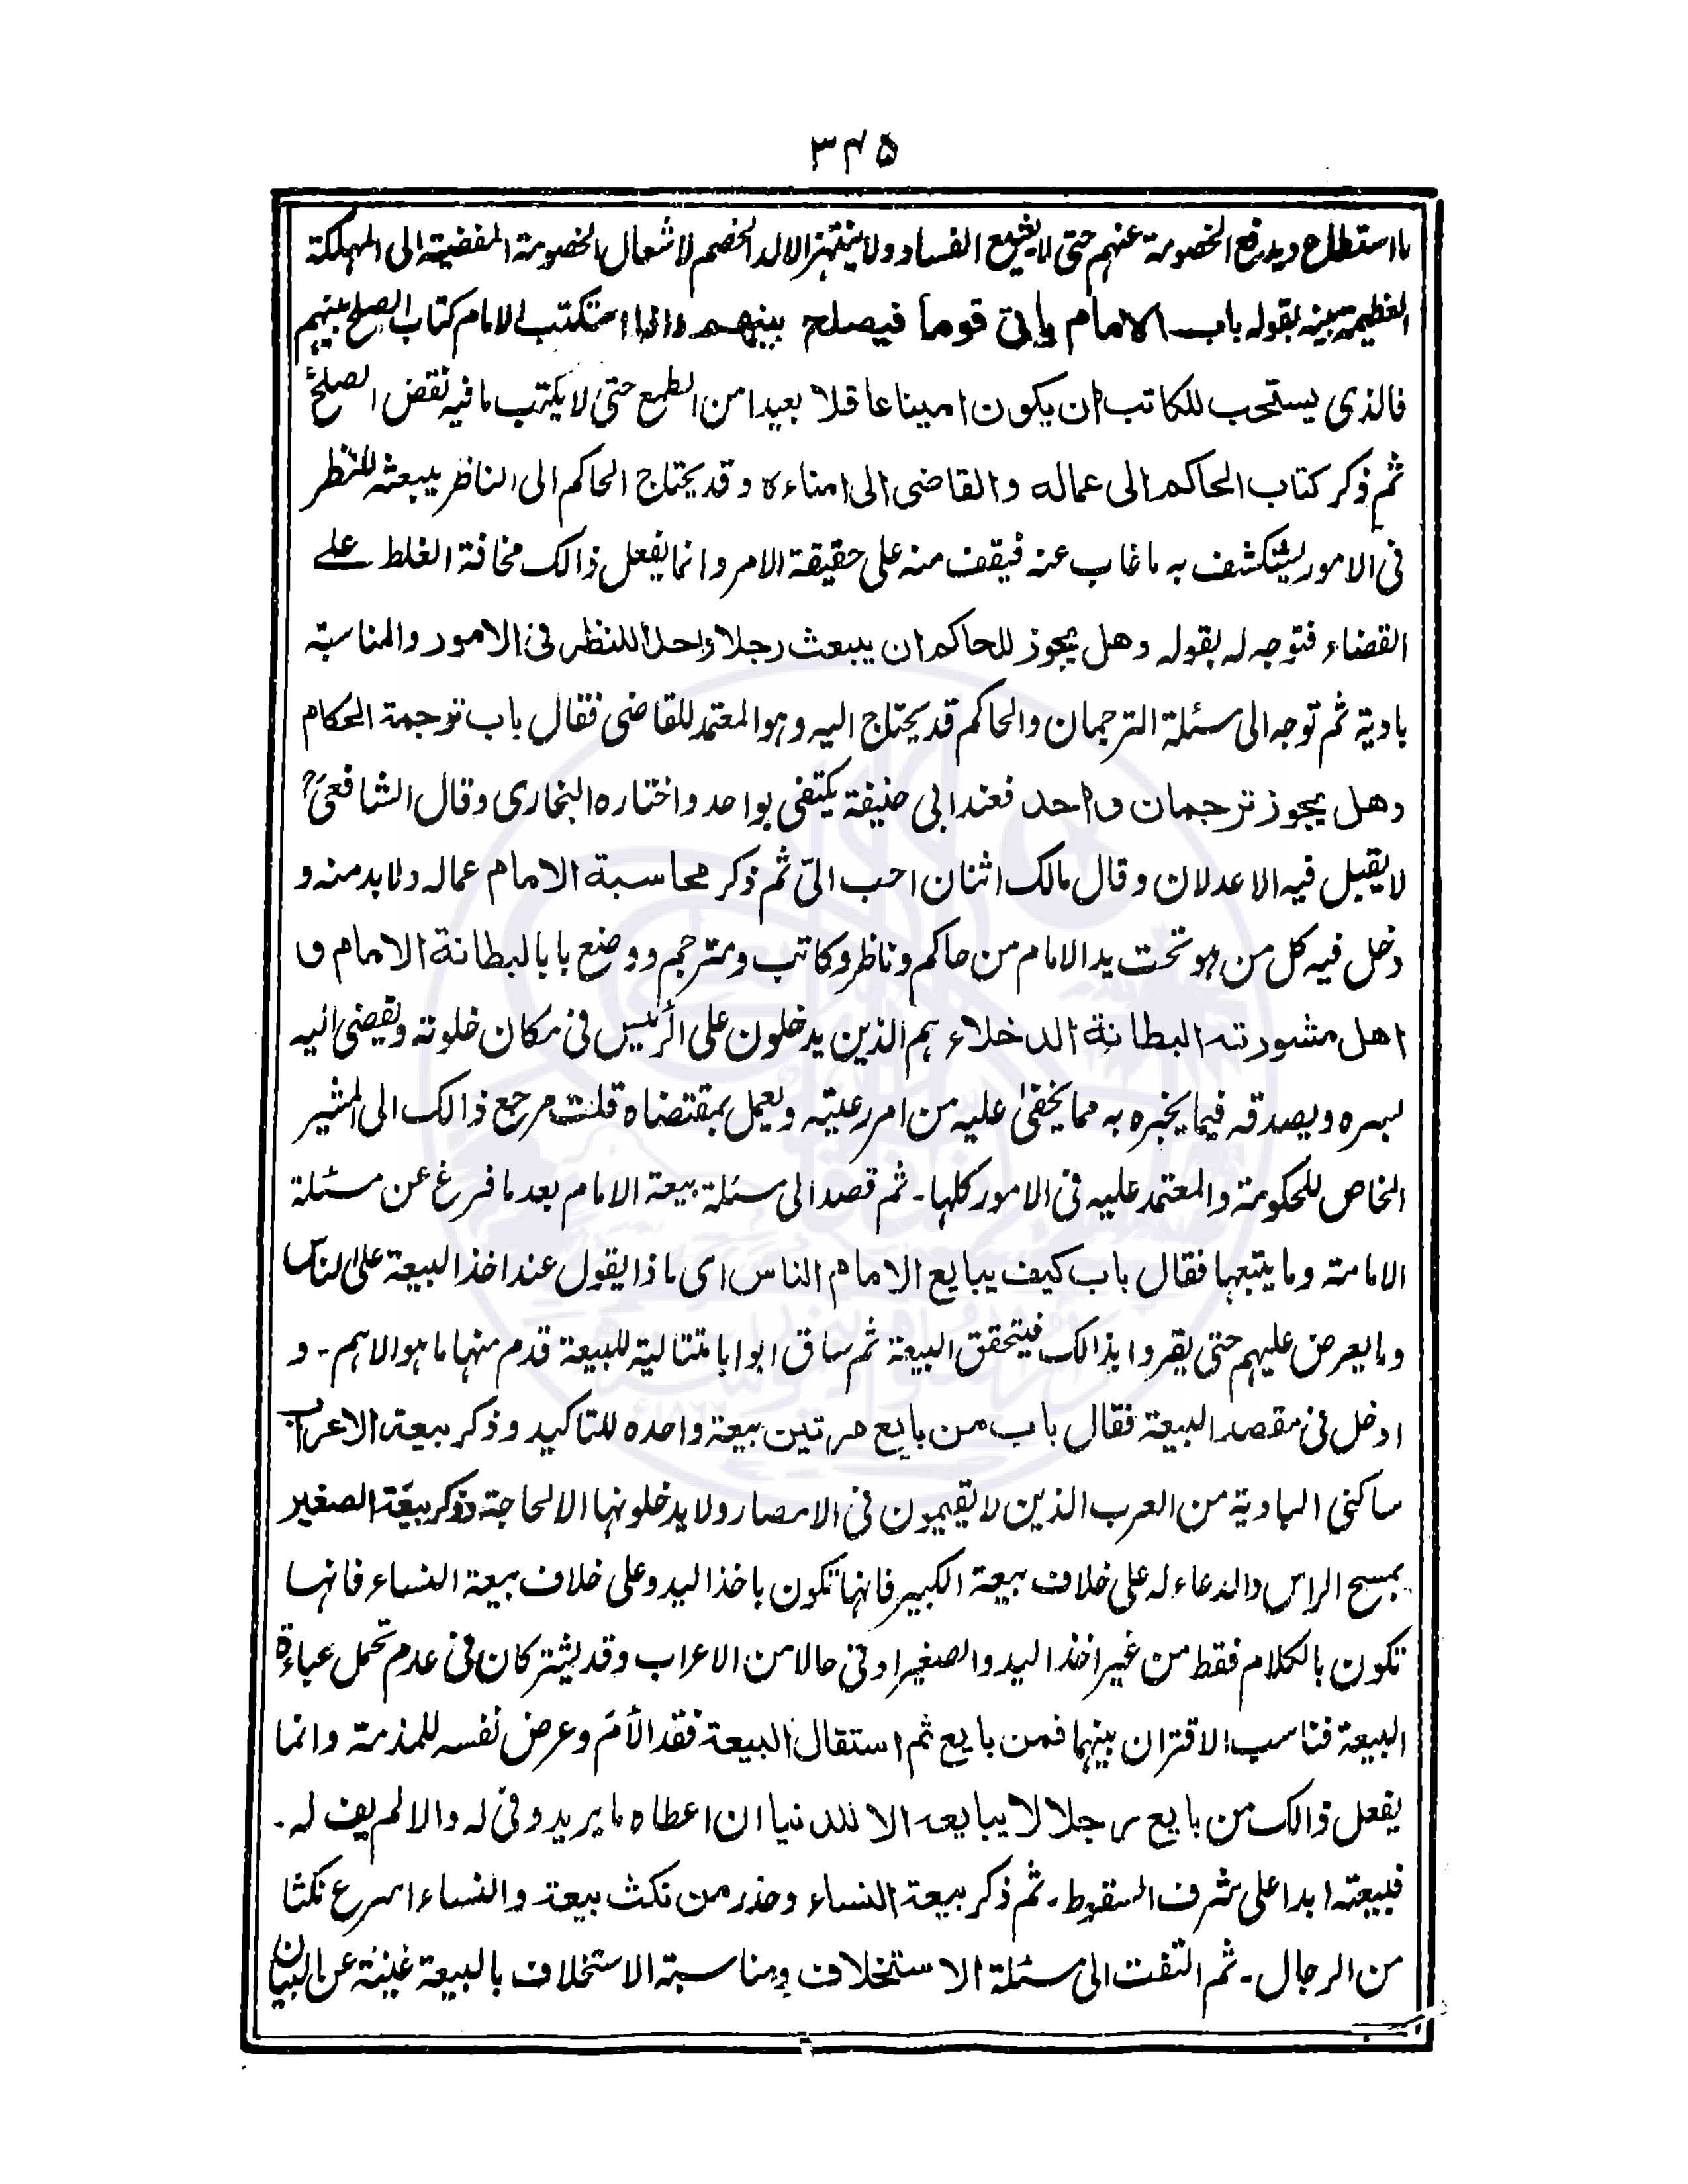 ۳۴۵
ما استطاع ويدفع الخصومة عنهم حتى لا يشيع الفساد ولا ينتهز الالد الخصم لاشعال الخصومة المفضية الى المهلكة
العظيمة بينه بقوله باب الامام ياتى قوما فيصلح بينهم واذا استكتب الامام كتاب الصلح بينهم
فالذى يستحب للكاتب ان يكون امينا عاقلا بعيدا من الطمع حتى لا يكتب ما فيه نقض الصلح
ثم ذكر كتاب الحاكم الى عماله والقاضى الى امناءه وقد يحتاج الحاكم الى الناظر يبعثه للنظر
فى الامور ليتكشف به ما غاب عنه فيقف منه على حقيقة الامر وانما يفعل ذالك مخافة الغلط على
القضاء فتوجه له بقوله وهل يجوز للحاكم ان يبعث رجلا واحدا للنظر فى الامور والمناسبة
بادية ثم توجه الى مسئلة الترجمان والحاكم قد يحتاج اليه وهو المعتمد للقاضى فقال باب ترجمة الحكام
وهل يجوز ترجمان واحد فعند ابى حنيفة يكتفى بواحد واختاره البخارى وقال الشافعىؒ
لا يقبل فيه الا عدلان وقال مالك اثنان احب الىّ ثم ذكر محاسبة الامام عماله ولا بد منه و
دخل فيه كل من هو تحت يد الامام من حاكم وناظر وكاتب ومترجم ووضع بابا لبطانة الامام و
اهل مشورته البطانة الدخلاء هم الذين يدخلون على الرئيس فى مكان خلوته ويفضى اليه
بسره ويصدقه فيما يخبره به مما يخفىٰ عليه من امر رعيته ويعمل بمقتضاه قلت مرجع ذالك الى المشير
الخاص للحكومة والمعتمد عليه فى الامور كلها۔ ثم قصد الى مسئلة بيعة الامام بعد ما فرغ عن مسئلة
الامامة وما يتبعها فقال باب كيف يبايع الامام الناس اى ماذا يقول عند اخذ البيعة على الناس
وما يعرض عليهم حتى يقروا بذالك فيتحقق البيعة ثم ساق ابوابا متتالية للبيعة قدم منها ما هو الاهم۔ و
ادخل فى مقصد البيعة فقال باب من بايع مرتين بيعة واحده للتاكيد وذكر بيعة الاعراب
ساكنى البادية من العرب الذين لا يقيمون فى الامصار ولا يدخلونها الا لحاجة وذكر بيعة الصغير
بمسح الراس والدعاء له على خلاف بيعة الكبير فانها تكون باخذ اليد وعلى خلاف بيعة النساء فانها
تكون بالكلام فقط من غير اخذ اليد والصغير ادنى حالا من الاعراب وقد يشتركان فى عدم تحمل عباءة
البيعة فناسب الاقتران بينهما فمن بايع ثم استقال البيعة فقد الأم وعرض نفسه للمذمة وانما
يفعل ذالك من بايع رجلا لا يبايعه الا للدنيا ان اعطاه ما يريد وفى له والا لم يف له۔
فبيعته ابدا على شرف السقوط۔ ثم ذكر بيعة النساء وحذر من نكث بيعة والنساء اسرع نكثا
من الرجال۔ ثم التفت الى مسئلة الاستخلاف ومناسبة الاستخلاف بالبيعة غنية عن البيان